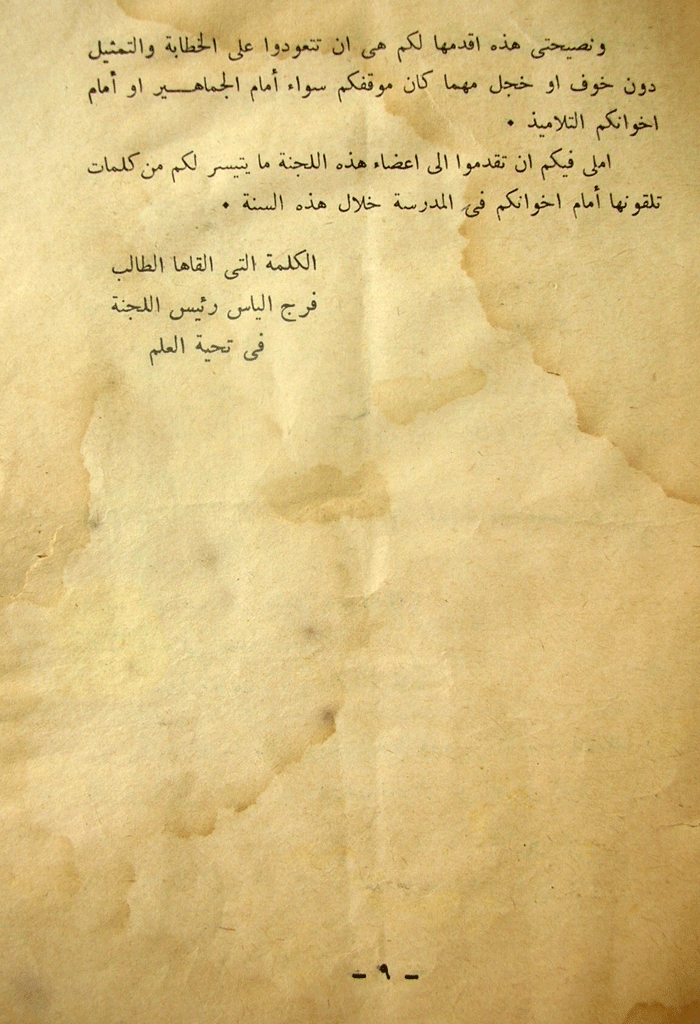 ونصيحتى هذه اقدمها لكم هى ان تتعودوا على الخطابة والتمثيل
دون خوف او خجل مهما كان موقفكم سواء أمام الجماهير او أمام
اخوانكم التلاميذ .
املى فيكم ان تقدموا الى اعضاء هذه اللجنة ما يتيسر لكم من كلمات
تلقونها أمام اخوانكم فى المدرسة خلال هذه السنة .
الكلمة التى القاها الطالب
فرج الياس رئيس اللجنة
فى تحية العلم
- ٩ -